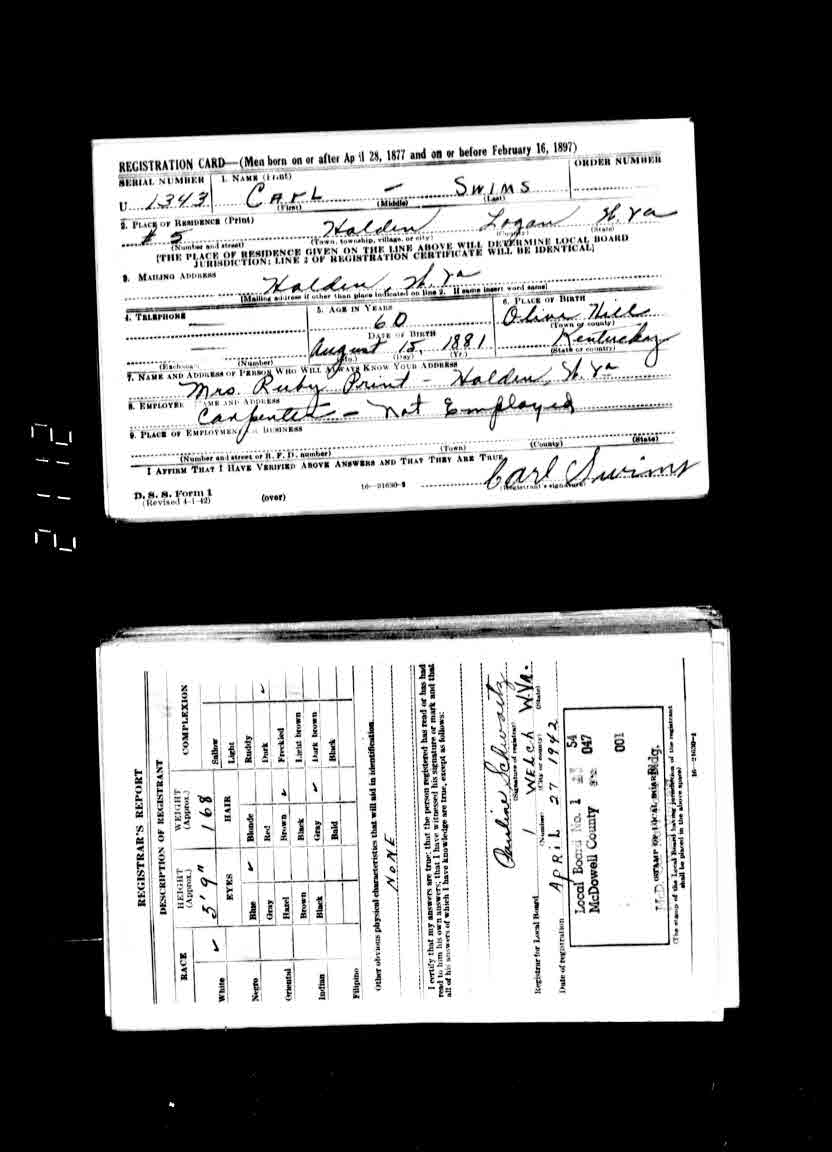 REGISTRATION CARD—(Men born on or after April 28, 1877 and on or before February 16, 1897)
SERIAL NUMBER 1. NAME (Print) ORDER NUMBER
U 1343 CArL — SWIMS
(First) (Middle) (Last)
2. PLACE OF RESIDENCE (Print)
# 5 Holden Logan W. Va
(Number and street) (Town, township, village, or city) (County) (State)
[THE PLACE OF RESIDENCE GIVEN ON THE LINE ABOVE WILL DETERMINE LOCAL BOARD
JURISDICTION; LINE 2 OF REGISTRATION CERTIFICATE WILL BE IDENTICAL]
3. MAILING ADDRESS
Holden, W. Va
[Mailing address if other than place indicated on line 2. If same insert word same]
4. TELEPHONE 5. AGE IN YEARS 6. PLACE OF BIRTH
— 60 Olive Hill
DATE OF BIRTH (Town or county)
— August 15, 1881 Kentucky
(Exchange) (Number) (Mo.) (Day) (Yr.) (State or country)
7. NAME AND ADDRESS OF PERSON WHO WILL ALWAYS KNOW YOUR ADDRESS
Mrs. Ruby Print — Holden, W. Va
8. EMPLOYER'S NAME AND ADDRESS
Carpenter — Not Employed
9. PLACE OF EMPLOYMENT OR BUSINESS
(Number and street or R. F. D. number) (Town) (County) (State)
I AFFIRM THAT I HAVE VERIFIED ABOVE ANSWERS AND THAT THEY ARE TRUE.
D. S. S. Form 1 16—21630-2 Carl Swims
(Revised 4-1-42) (over) (Registrant's signature)
21-12
REGISTRAR'S REPORT
DESCRIPTION OF REGISTRANT
RACE HEIGHT (Approx.) WEIGHT (Approx.) COMPLEXION
5' 9" 168
White ✓ EYES HAIR Sallow
Light
Negro Blue ✓ Blonde Ruddy
Gray Red Dark ✓
Oriental Hazel Brown ✓ Freckled
Brown Black Light brown
Indian Black Gray ✓ Dark brown
Bald Black
Filipino
Other obvious physical characteristics that will aid in identification
NoNE
I certify that my answers are true; that the person registered has read or has had
read to him his own answers; that I have witnessed his signature or mark and that
all of his answers of which I have knowledge are true, except as follows:
Pauline Schwartz
(Signature of registrar)
Registrar for Local Board 1 WELCH W.VA.
(Number) (City or county) (State)
Date of registration APRiL 27 1942
Local Board No. 1 54
McDowell County 047
001
Bldg.
(STAMP OF LOCAL BOARD)
(The stamp of the Local Board having jurisdiction of the registrant
shall be placed in the above space)
16—21630-1